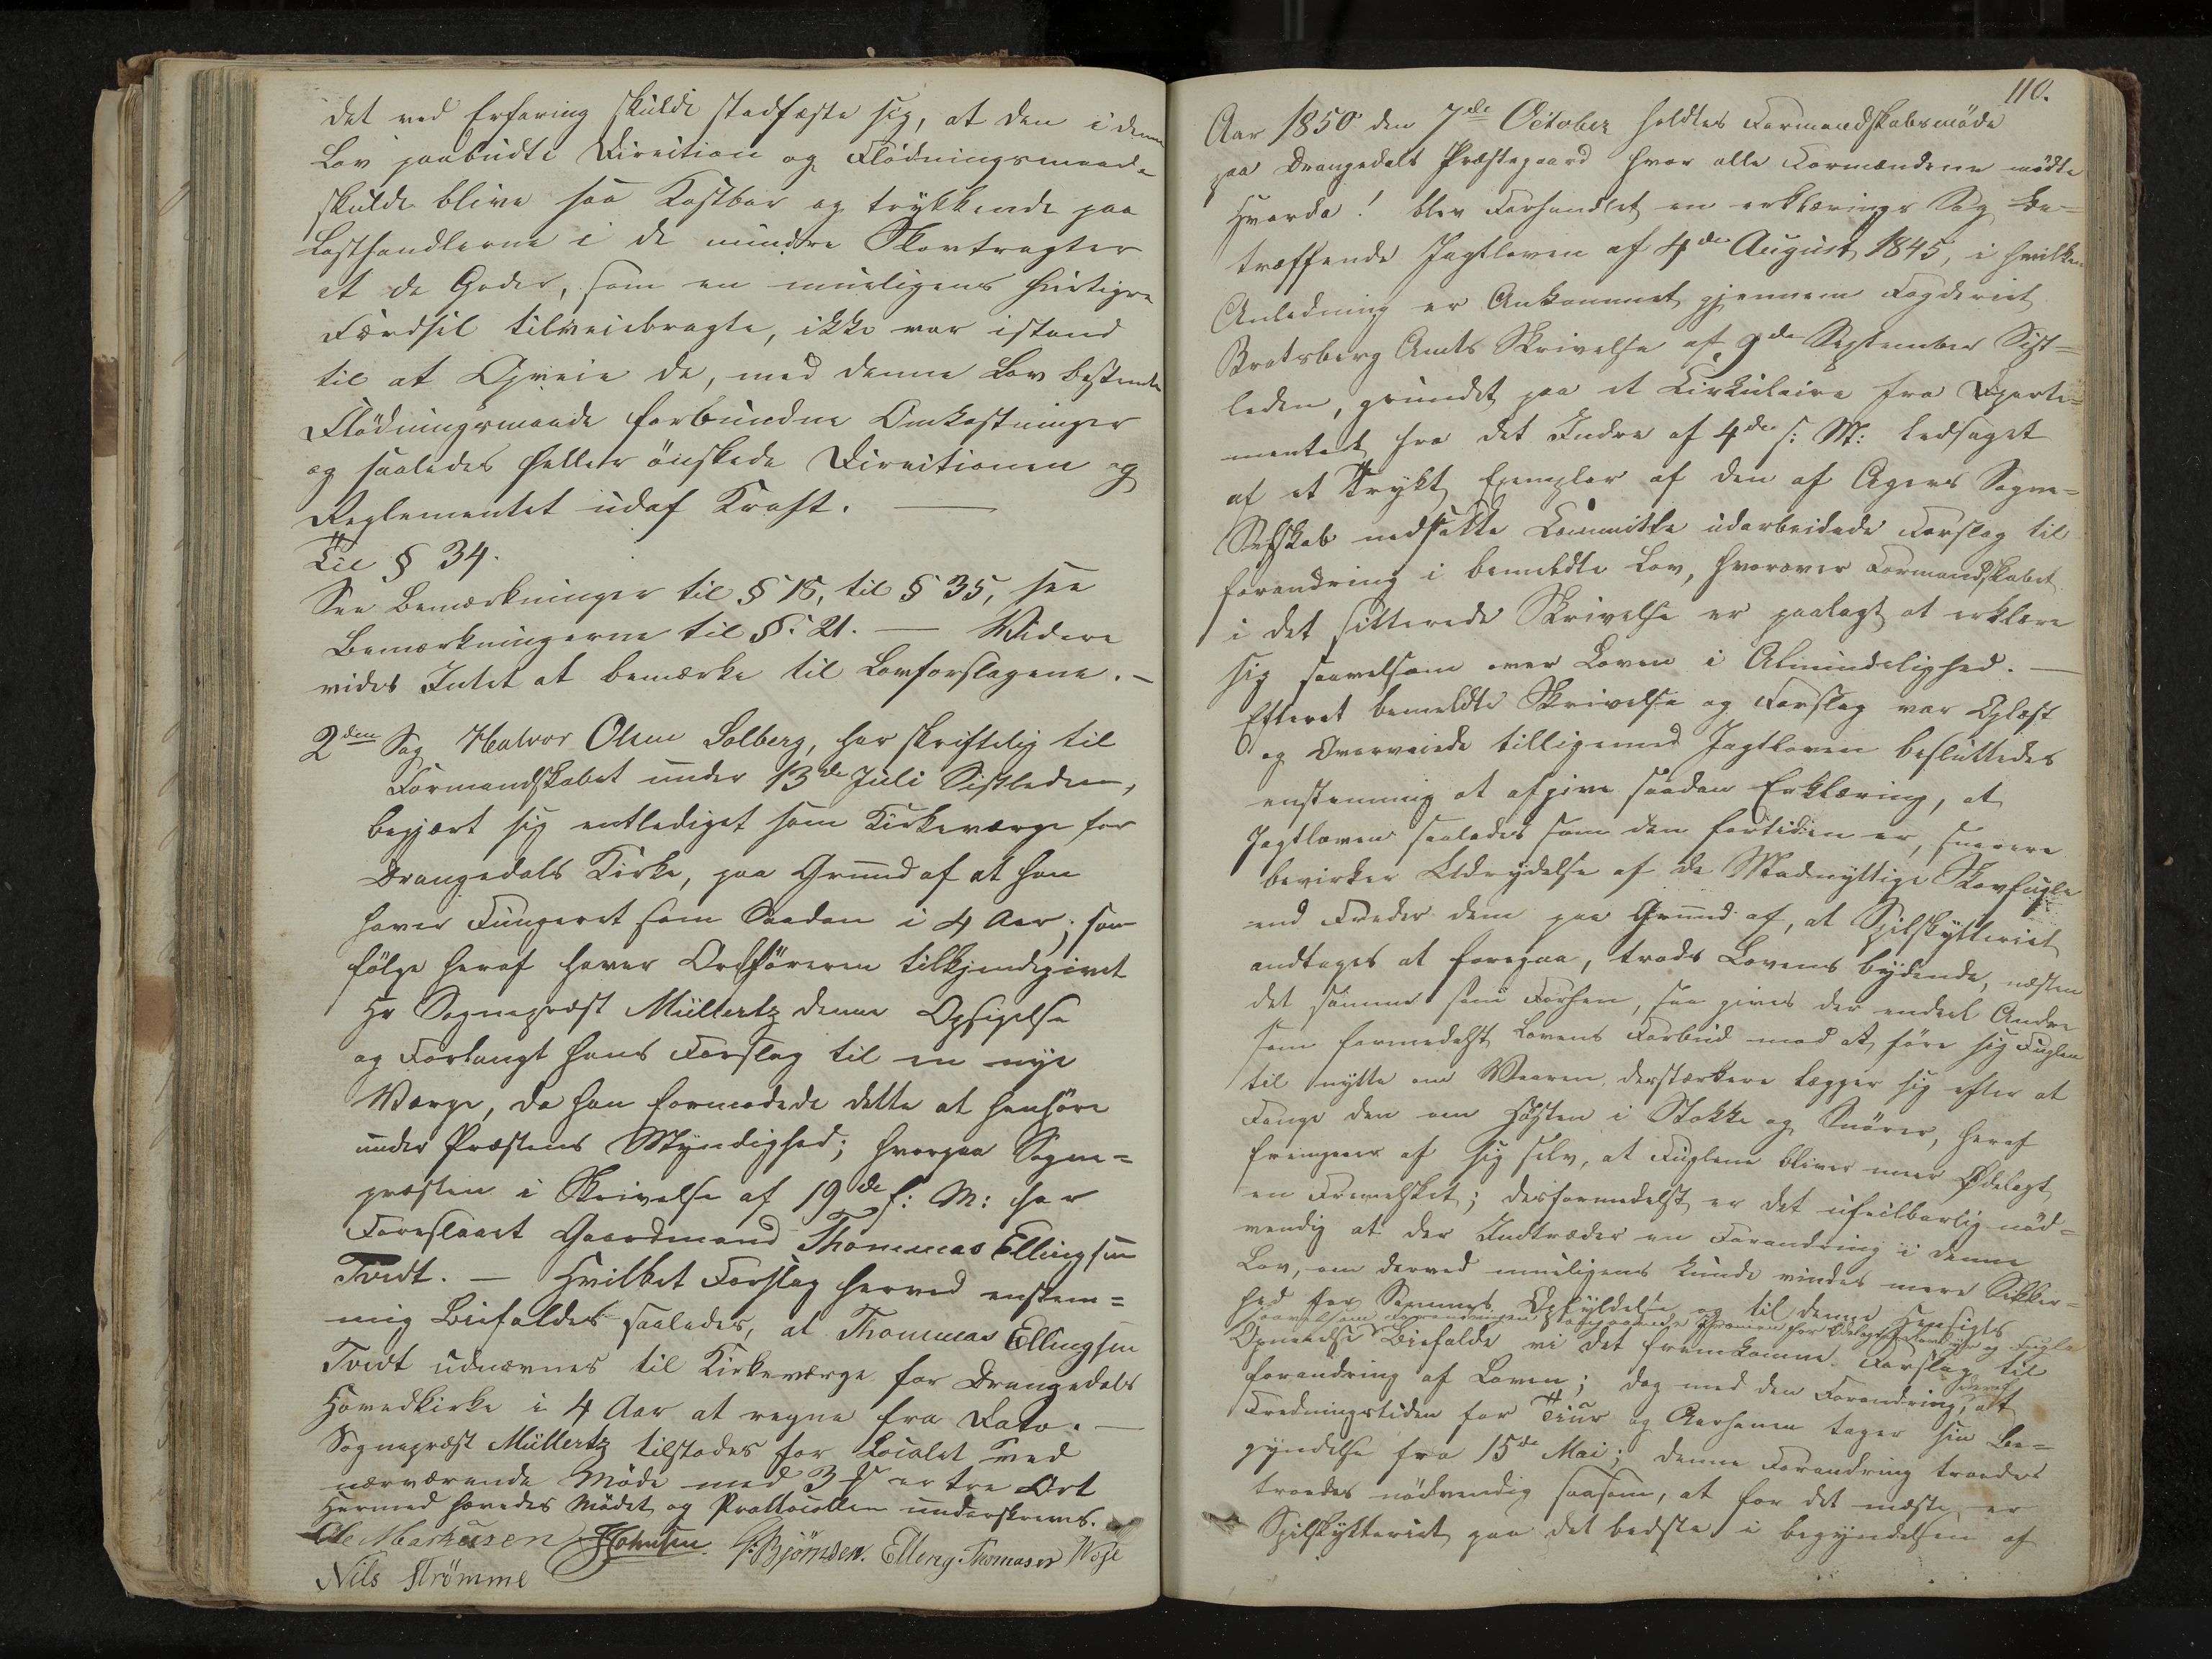 det ved Erfaring skulde stadfæste sig, at den i denne
Lov paabudte Direction og Flödningsmaade
skulde blive saa Kostbar og trykkende paa
Lasthandlerne i de mindre Skovtragter
at de Goder, som en mueligens hurtigere
Færdsel tilveiebragte, ikke var istand
til at Opveie de, med denne Lov bestemte
Flödningsmaade forbundne Omkostninger
og saaledes heller önskede Directionen og
Reglementet udaf Kraft. —
Til § 34.
See Bemærkninger til § 18, til § 35, see
Bemærkningerne til §. 21. — Widere
vides Intet at bemærke til Lovforslagene. –
2den Sag Halvor Olsen Solberg, har skriftelig til
Formandskabet under 13de Juli Sistleden,
begjært sig entlediget som Kirkeværge for
Drangedals Kirke, paa Grund af at han
haver Fungeret som Saadan i 4 Aar; som
fölge heraf haver Ordföreren tilkjendegivet
Hr Sognepræst Müllertz denne Opsigelse
og Forlangt hans Forslag til en nye
Værge, da han formodede dette at henhöre
under Præstens Myndighed; hvorpaa Sogne=
præsten i Skrivelse af 19de s: M: har
Foreslaaet Gaardmand Thommas Ellingsen
Tvedt. — Hvilket Forslag herved enstem=
mig Biefaldes saaledes, at Thommas Ellingsen
Tvedt udnævnes til Kirkeværge for Drangedals
Hovedkirke i 4 Aar at regne fra Dato. —
Sognepræst Müllertz tilstodes for Localet ved
nærværende Möde med 3 er tre Ort
Hermed hævedes Mödet og Prottocollen underskreves.
Ole Markusen JJohnsen G:Björnsen. Elleng Thomasen Woje
Nils Strömme
110.
Aar 1850 den 7de October holdtes Formandskabsmöde
paa Drangedals Præstegaard hvor alle Formændene mödte
Hvorda! blev Forhandlet en erklærings Sag be=
træffende Jagtloven af 4de August 1845, i hvilken
Anledning er Ankommet gjennem Fogderiet
Bratsberg Amts Skrivelse af 9de September Sist=
leden, grundet paa et Cirkulaire fra Departe=
mentet for det Indre af 4de s: M: ledsaget
af et trykt Exemplar af den af Agers Sogne=
Selskab nedsatte Committe udarbeidede Forslag til
forandring i bemeldte Lov, hvorover Formandskabet
i det sitterede Skrivelse er paalagt at erklære
sig saavelsom over Loven i Almindelighed. —
Efterat bemeldte Skrivelse og Forslag var Oplæst
og Overveiede tilligemed Jagtloven besluttedes
enstemmig at afgive saadan Erklæring, at
Jagtloven saaledes som den fortiden er, snarere
bevirker Udrydelse af de Madnyttige Skovfugle
end Freder dem paa Grund af, at Spilskytteriet
andtages at foregaa, trods Lovens bydende, næsten
det samme som Forhen, saa gives der endeel Andre
som formedelst Lovens Forbud mod at före sig Fuglen
til nytte om Vaaren, desstærkere lægger sig efter at
Fange den om Hösten i Stokke og Snörer, heraf
fremgaaer af sig selv, at Fuglene bliver meer Ödelagt
en Fremelsket; desformedelst er det ufeilbarlig nöd=
vendig at der Indtræder en Forandring i denne
Lov, om derved mueligens kunde vindes mere Sikker=
hed for Sammes Opfyldelse og til denne Hensigts
saavelsom Forandringen angaaende Præmien for Ödelagte Rovdyr og Fugle
Opnaaelse Biefalde vi det fremkomne Forslag til
forandring af Loven; dog med den Forandring, at
Fredningstiden for Tiur og Aarhanen tager sin Be=
gyndelse fra 15de Mai; denne Forandring troedes
troedes nödvendig saasom, at for det mæste er
Spilskytteriet paa det bedste i begyndelsen af